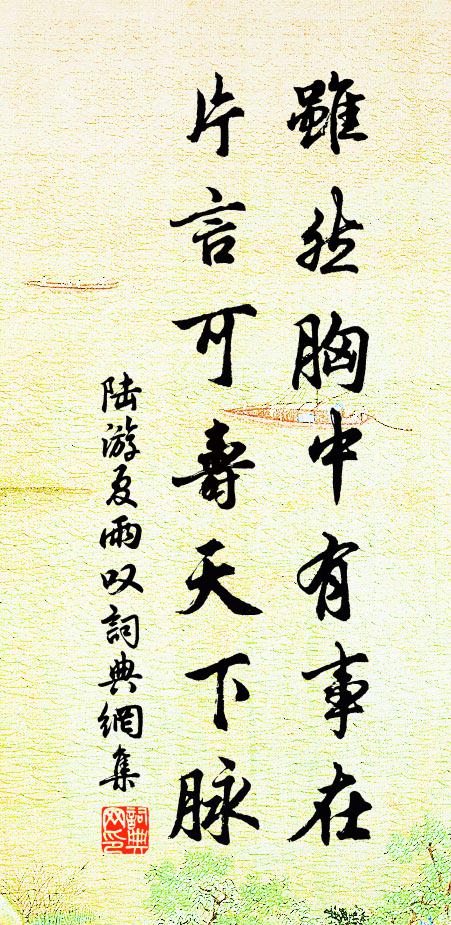 雖然胸中有事在
片言可壽天下脉
陸游夏雨叹詞典網集
詞典网印